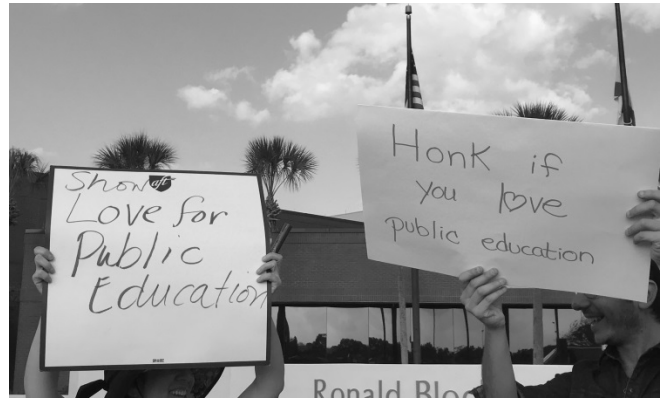 Show aft
Love for
Public
Education
Honk if
you love
public education
Ronald Bloc